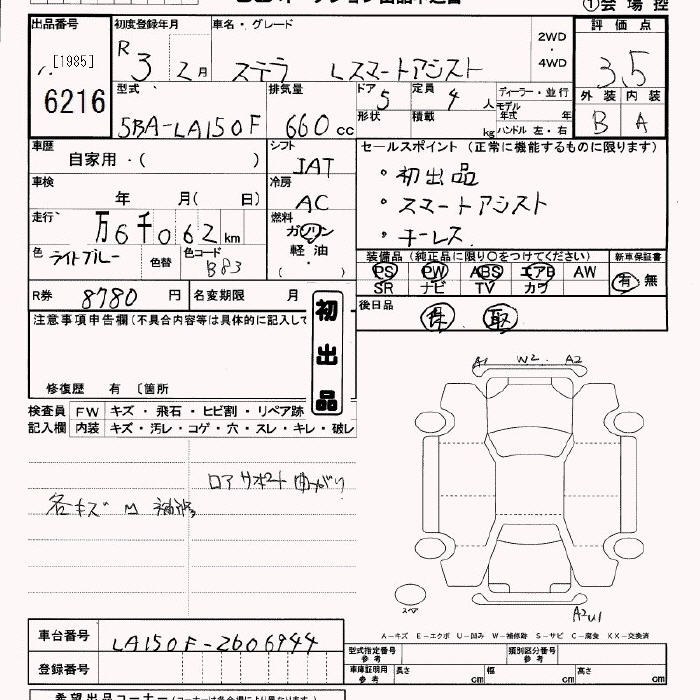 ①会場控
出品番号
[1985]
6216
初度登録年月
R 3 2月
車名・グレード
ステラ Lスマートアシスト
2WD
・
4WD
評価点
3.5
外装 内装
B A
型式
5BA-LA150F
排気量
660cc
ドア
5
形状
定員
4人
積載
kg
ディーラー・並行
モデル
年式 年
ハンドル 左・右
車歴
自家用・( )
シフト
IAT
セールスポイント (正常に機能するものに限ります)
・初出品
・スマートアシスト
・キーレス
車検
年 月( 日)
冷房
AC
走行
万6千062km
燃料
ガソリン
・
軽油
( )
色 ライトブルー
色替
色コード
B83
装備品 (純正品に限り○をつけてください)
PS PW ABS エアB AW
SR ナビ TV カワ
新車保証書
有 無
R券 8780円
名変期限 月
初出品
後日品
保 取
注意事項申告欄(不具合内容等は具体的に記入して
修復歴 有 〔箇所
検査員
記入欄
FW キズ・飛石・ヒビ割・リペア跡
内装 キズ・汚レ・コゲ・穴・スレ・キレ・破レ
A1 W2 A2
ロアサポート曲がり
各キズ M 補修
スペア
A2U1
A-キズ E-エクボ U-凹み W-補修跡 S-サビ C-腐食 XX-交換済
車台番号
LA150F-2606944
登録番号
型式指定番号
参考
類別区分番号
参考
車庫証明用
参考
長さ cm 幅 cm 高さ cm